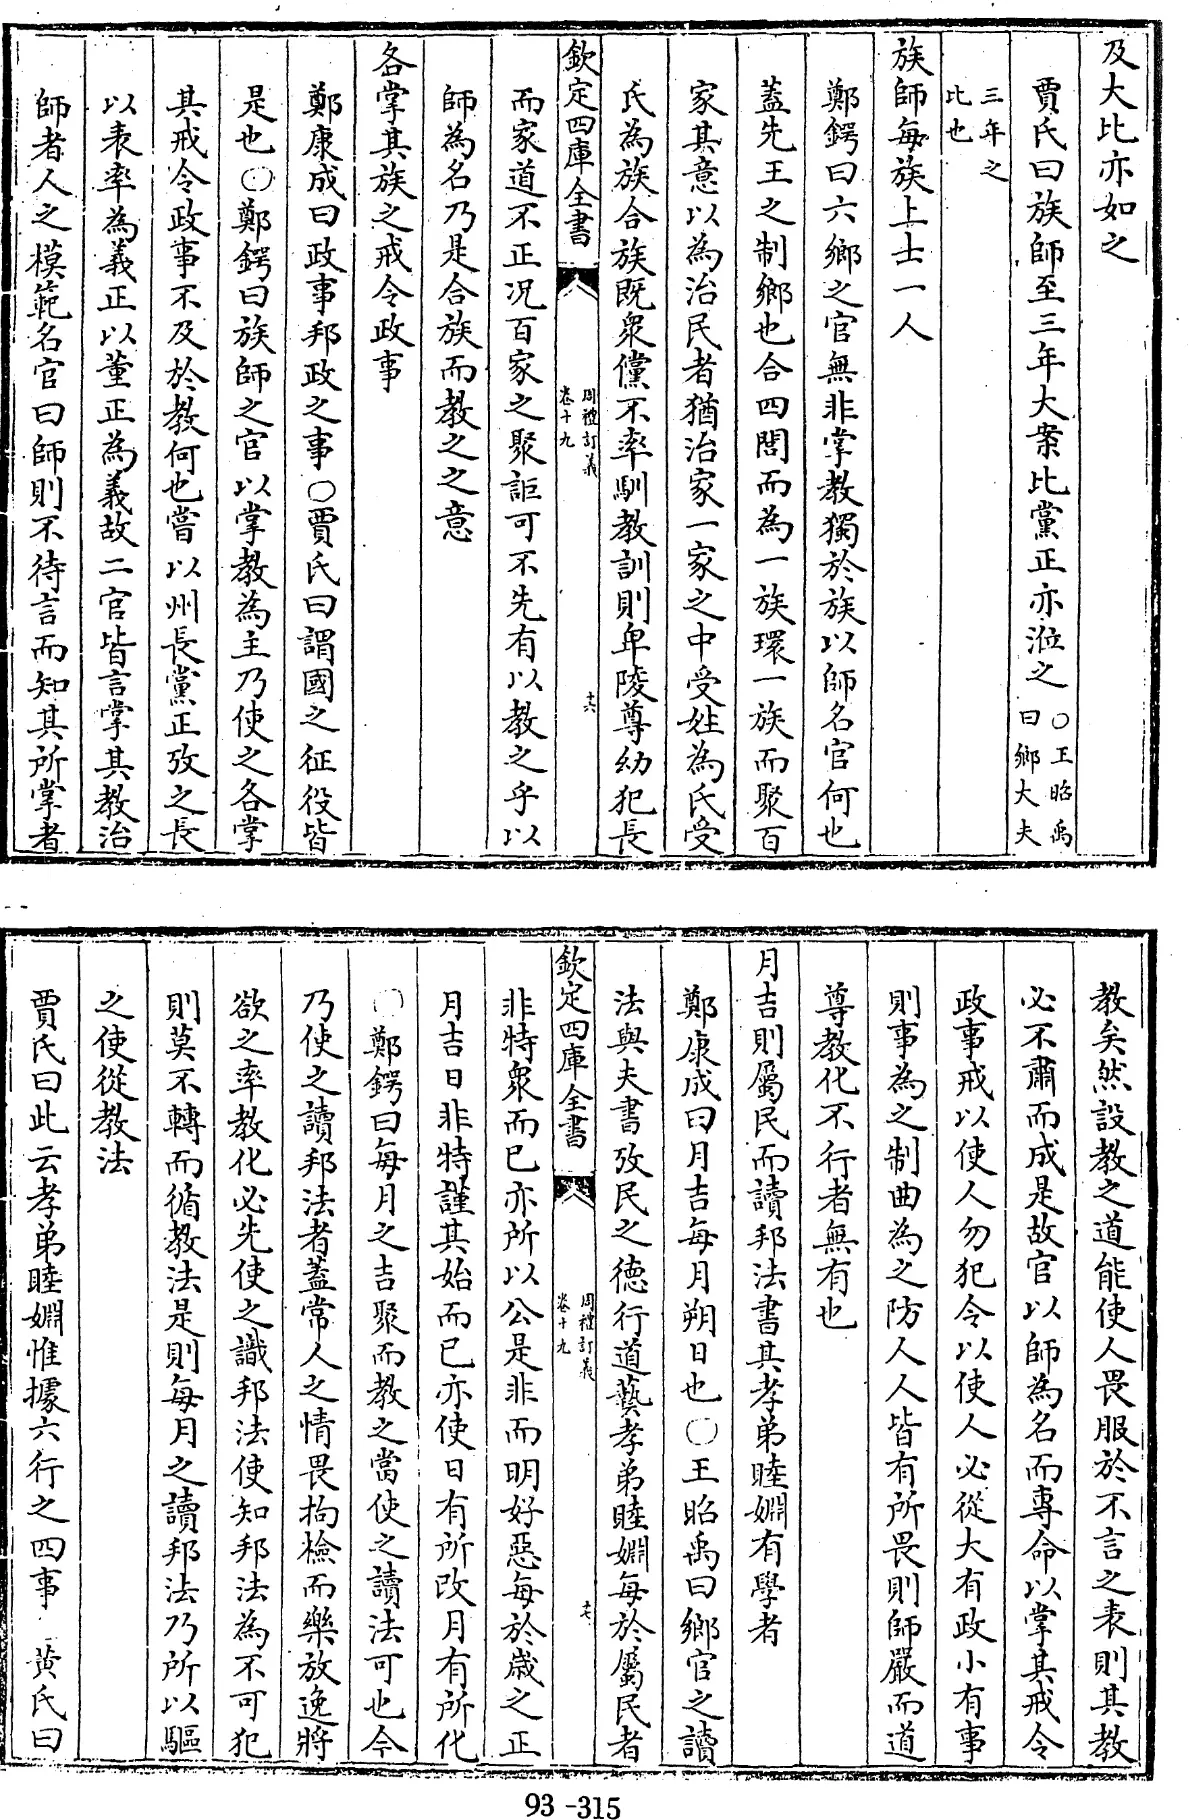 及大比亦如之
賈氏曰族師至三年大案比黨正亦涖之○王昭禹曰鄉大夫
三年之比也
族師每族上士一人
鄭鍔曰六鄉之官無非掌教獨於族以師名官何也
蓋先王之制鄉也合四閭而為一族環一族而聚百
家其意以為治民者猶治家一家之中受姓為氏受
氏為族合族既衆儻不率馴教訓則卑陵尊幼犯長
欽定四庫全書 周禮訂義卷十九 十六
而家道不正況百家之聚詎可不先有以教之乎以
師為名乃是合族而教之之意
各掌其族之戒令政事
鄭康成曰政事邦政之事○賈氏曰謂國之征役皆
是也○鄭鍔曰族師之官以掌教為主乃使之各掌
其戒令政事不及於教何也嘗以州長黨正攷之長
以表率為義正以董正為義故二官皆言掌其教治
師者人之模範名官曰師則不待言而知其所掌者
教矣然設教之道能使人畏服於不言之表則其教
必不肅而成是故官以師為名而專命以掌其戒令
政事戒以使人勿犯令以使人必從大有政小有事
則事為之制曲為之防人人皆有所畏則師嚴而道
尊教化不行者無有也
月吉則屬民而讀邦法書其孝弟睦婣有學者
鄭康成曰月吉每月朔日也○王昭禹曰鄉官之讀
法與夫書攷民之德行道藝孝弟睦婣每於屬民者
欽定四庫全書 周禮訂義卷十九 十七
非特衆而已亦所以公是非而明好惡每於歲之正
月吉日非特謹其始而已亦使日有所改月有所化
○鄭鍔曰每月之吉聚而教之當使之讀法可也今
乃使之讀邦法者蓋常人之情畏拘檢而樂放逸將
欲之率教化必先使之識邦法使知邦法為不可犯
則莫不轉而循教法是則每月之讀邦法乃所以驅
之使從教法
賈氏曰此云孝弟睦婣惟據六行之四事 黃氏曰
93-315